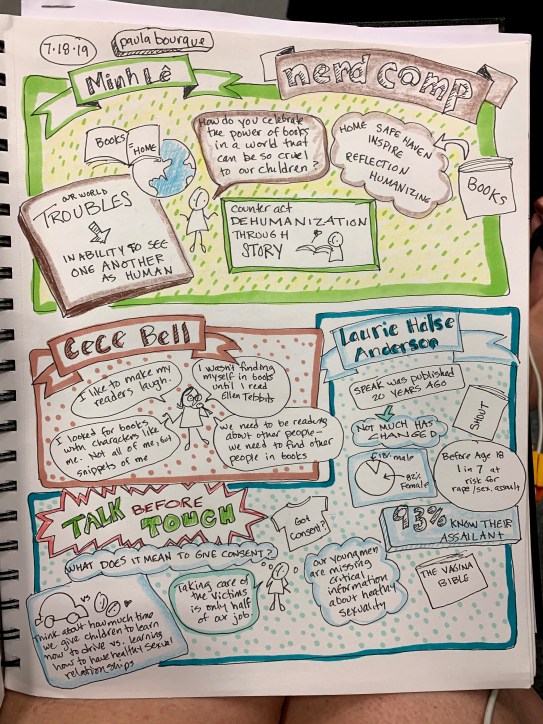 7.18.19
paula bourque
Minh Lê
nerd camp
BOOKS
HOME
How do you celebrate
the power of books
in a world that
can be so cruel
to our children?
HOME SAFE HAVEN
INSPIRE
REFLECTION
HUMANIZING
BOOKS
OUR WORLD
TROUBLES
INABILITY TO SEE
ONE ANOTHER
AS HUMAN
counter act
DEHUMANIZATION
THROUGH
STORY
Cece Bell
I like to make my
readers laugh.
I wasn't finding
myself in books
until I read
Ellen Tebbits
I looked for books
with characters like
me. Not all of me, but
snippets of me
We need to be reading
about other people-
we need to find other
people in books
Laurie Halse
Anderson
SPEAK was published
20 YEARS AGO
SHOUT
NOT MUCH HAS
CHANGED
18% male
82% Female
Before Age 18
1 in 7 at
risk for
rape/sex. assault
93% KNOW THEIR
ASSAILANT
THE VAGINA
BIBLE
TALK BEFORE
TOUCH
Got
Consent?
WHAT DOES IT MEAN TO GIVE CONSENT?
Taking care of
the victims
is only half
of our job
our young men
are missing
critical
information
about healthy
sexuality
vs
Think about how much time
we give children to learn
how to drive vs. learning
how to have healthy sexual
relationships